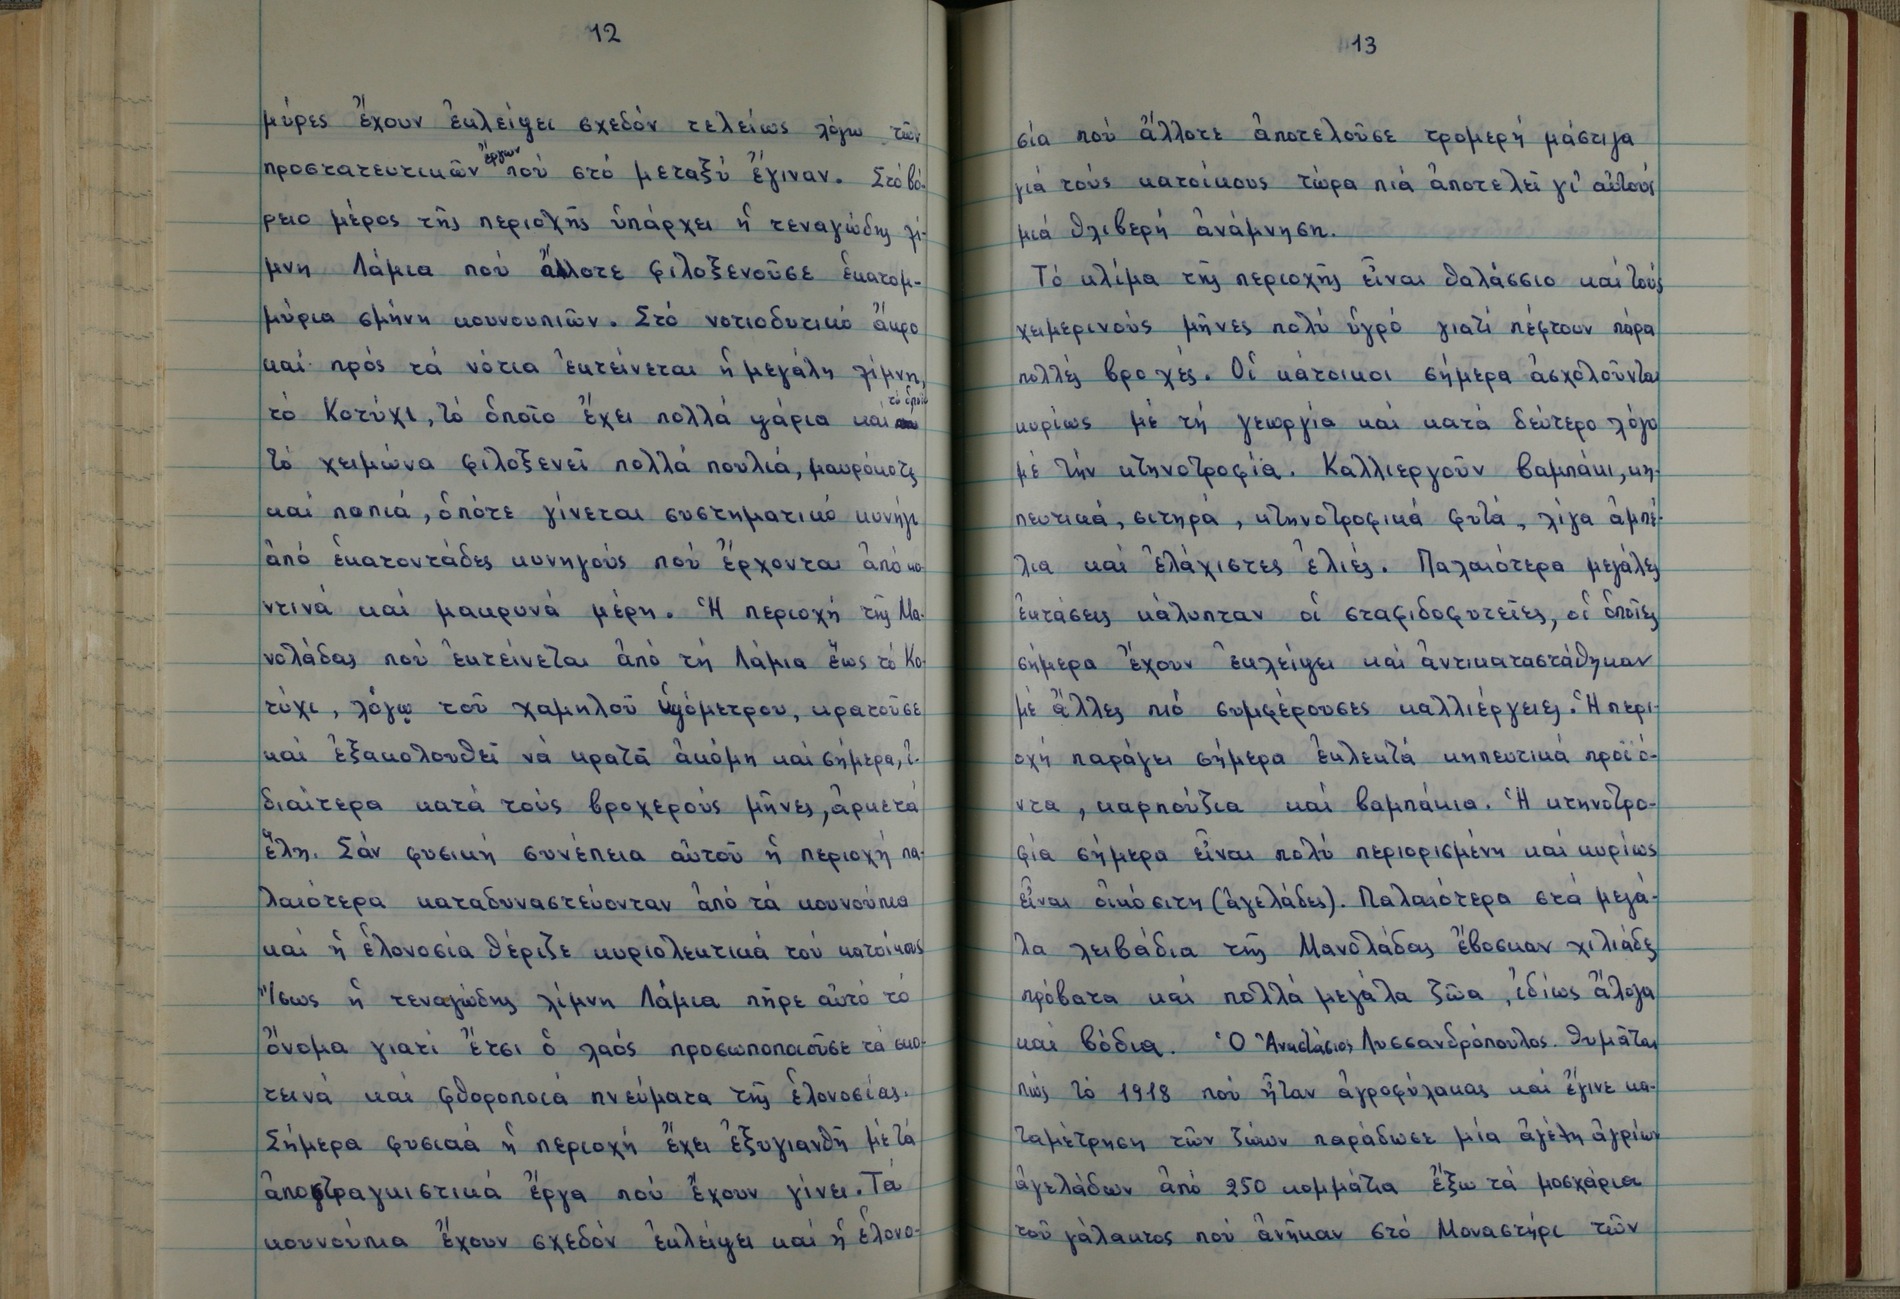 12
μύρες ἔχουν ἐκλείψει σχεδόν τελείως λόγω τῶν
προστατευτικῶν ἔργων πού στό μεταξύ ἔγιναν. Στό βό-
ρειο μέρος τῆς περιοχῆς ὑπάρχει ἡ τεναγώδης λί-
μνη Λάμια πού ἄλλοτε φιλοξενοῦσε ἑκατομ-
μύρια σμήνη κουνουπιῶν. Στό νοτιοδυτικό ἄκρο
καί πρός τά νότια ἐκτείνεται ἡ μεγάλη λίμνη,
τό Κοτύχι, τό ὁποῖο ἔχει πολλά ψάρια καί τό ὁποῖο
τό χειμώνα φιλοξενεῖ πολλά πουλιά, μαυρόκοτες
καί παπιά, ὁπότε γίνεται συστηματικό κυνήγι
ἀπό ἑκατοντάδες κυνηγούς πού ἔρχονται ἀπό κο-
ντινά καί μακρυνά μέρη. Ἡ περιοχή τῆς Μα-
νολάδας πού ἐκτείνεται ἀπό τή Λάμια ἕως τό Κο-
τύχι, λόγῳ τοῦ χαμηλοῦ ὑψόμετρου, κρατοῦσε
καί ἐξακολουθεῖ νά κρατᾶ ἀκόμη καί σήμερα, ἰ-
διαίτερα κατά τούς βροχερούς μῆνες, ἀρκετά
ἕλη. Σάν φυσική συνέπεια αὐτοῦ ἡ περιοχή πα-
λαιότερα καταδυναστεύονταν ἀπό τά κουνούπια
καί ἡ ἑλονοσία θέριζε κυριολεκτικά τού κατοίκους
Ἴσως ἡ τεναγώδης λίμνη Λάμια πῆρε αὐτό τό
ὄνομα γιατί ἔτσι ὁ λαός προσωποποιοῦσε τά σκο-
τεινά καί φθοροποιά πνεύματα τῆς ἑλονοσίας.
Σήμερα φυσικά ἡ περιοχή ἔχει ἐξυγιανθῆ μέ τά
ἀποστραγγιστικά ἔργα πού ἔχουν γίνει. Τά
κουνούπια ἔχουν σχεδόν ἐκλείψει καί ἡ ἑλονο-
13
σία πού ἄλλοτε ἀποτελοῦσε τρομερή μάστιγα
γιά τούς κατοίκους τώρα πιά ἀποτελεῖ γι' αὐτούς
μιά θλιβερή ἀνάμνηση.
Τό κλίμα τῆς περιοχῆς εἶναι θαλάσσιο καί τούς
χειμερινούς μῆνες πολύ ὑγρό γιατί πέφτουν πάρα
πολλές βροχές. Οἱ κάτοικοι σήμερα ἀσχολοῦνται
κυρίως μέ τή γεωργία καί κατά δεύτερο λόγο
μέ τήν κτηνοτροφία. Καλλιεργοῦν βαμπάκι, κη-
πευτικά, σιτηρά, κτηνοτροφικά φυτά, λίγα ἀμπέ-
λια καί ἐλάχιστες ἐλιές. Παλαιότερα μεγάλες
ἐκτάσεις κάλυπταν οἱ σταφιδοφυτεῖες, οἱ ὁποῖες
σήμερα ἔχουν ἐκλείψει καί ἀντικαταστάθηκαν
μέ ἄλλες πιό συμφέρουσες καλλιέργειες. Ἡ περι-
οχή παράγει σήμερα ἐκλεκτά κηπευτικά προϊό-
ντα, καρπούζια καί βαμπάκια. Ἡ κτηνοτρο-
φία σήμερα εἶναι πολύ περιορισμένη καί κυρίως
εἶναι οἰκόσιτη (ἀγελάδες). Παλαιότερα στά μεγά-
λα λειβάδια τῆς Μανολάδας ἔβοσκαν χιλιάδες
πρόβατα καί πολλά μεγάλα ζῶα, ἰδίως ἄλογα
καί βόδια. Ὁ Ἀναστάσιος Λυσσανδρόπουλος θυμᾶται
πώς τό 1918 πού ἦταν ἀγροφύλακας καί ἔγινε κα-
ταμέτρηση τῶν ζώων παράδωσε μία ἀγέλη ἀγρίων
ἀγελάδων ἀπό 250 κομμάτια ἔξω τά μοσχάρια
τοῦ γάλακτος πού ἀνῆκαν στό Μοναστήρι τῶν